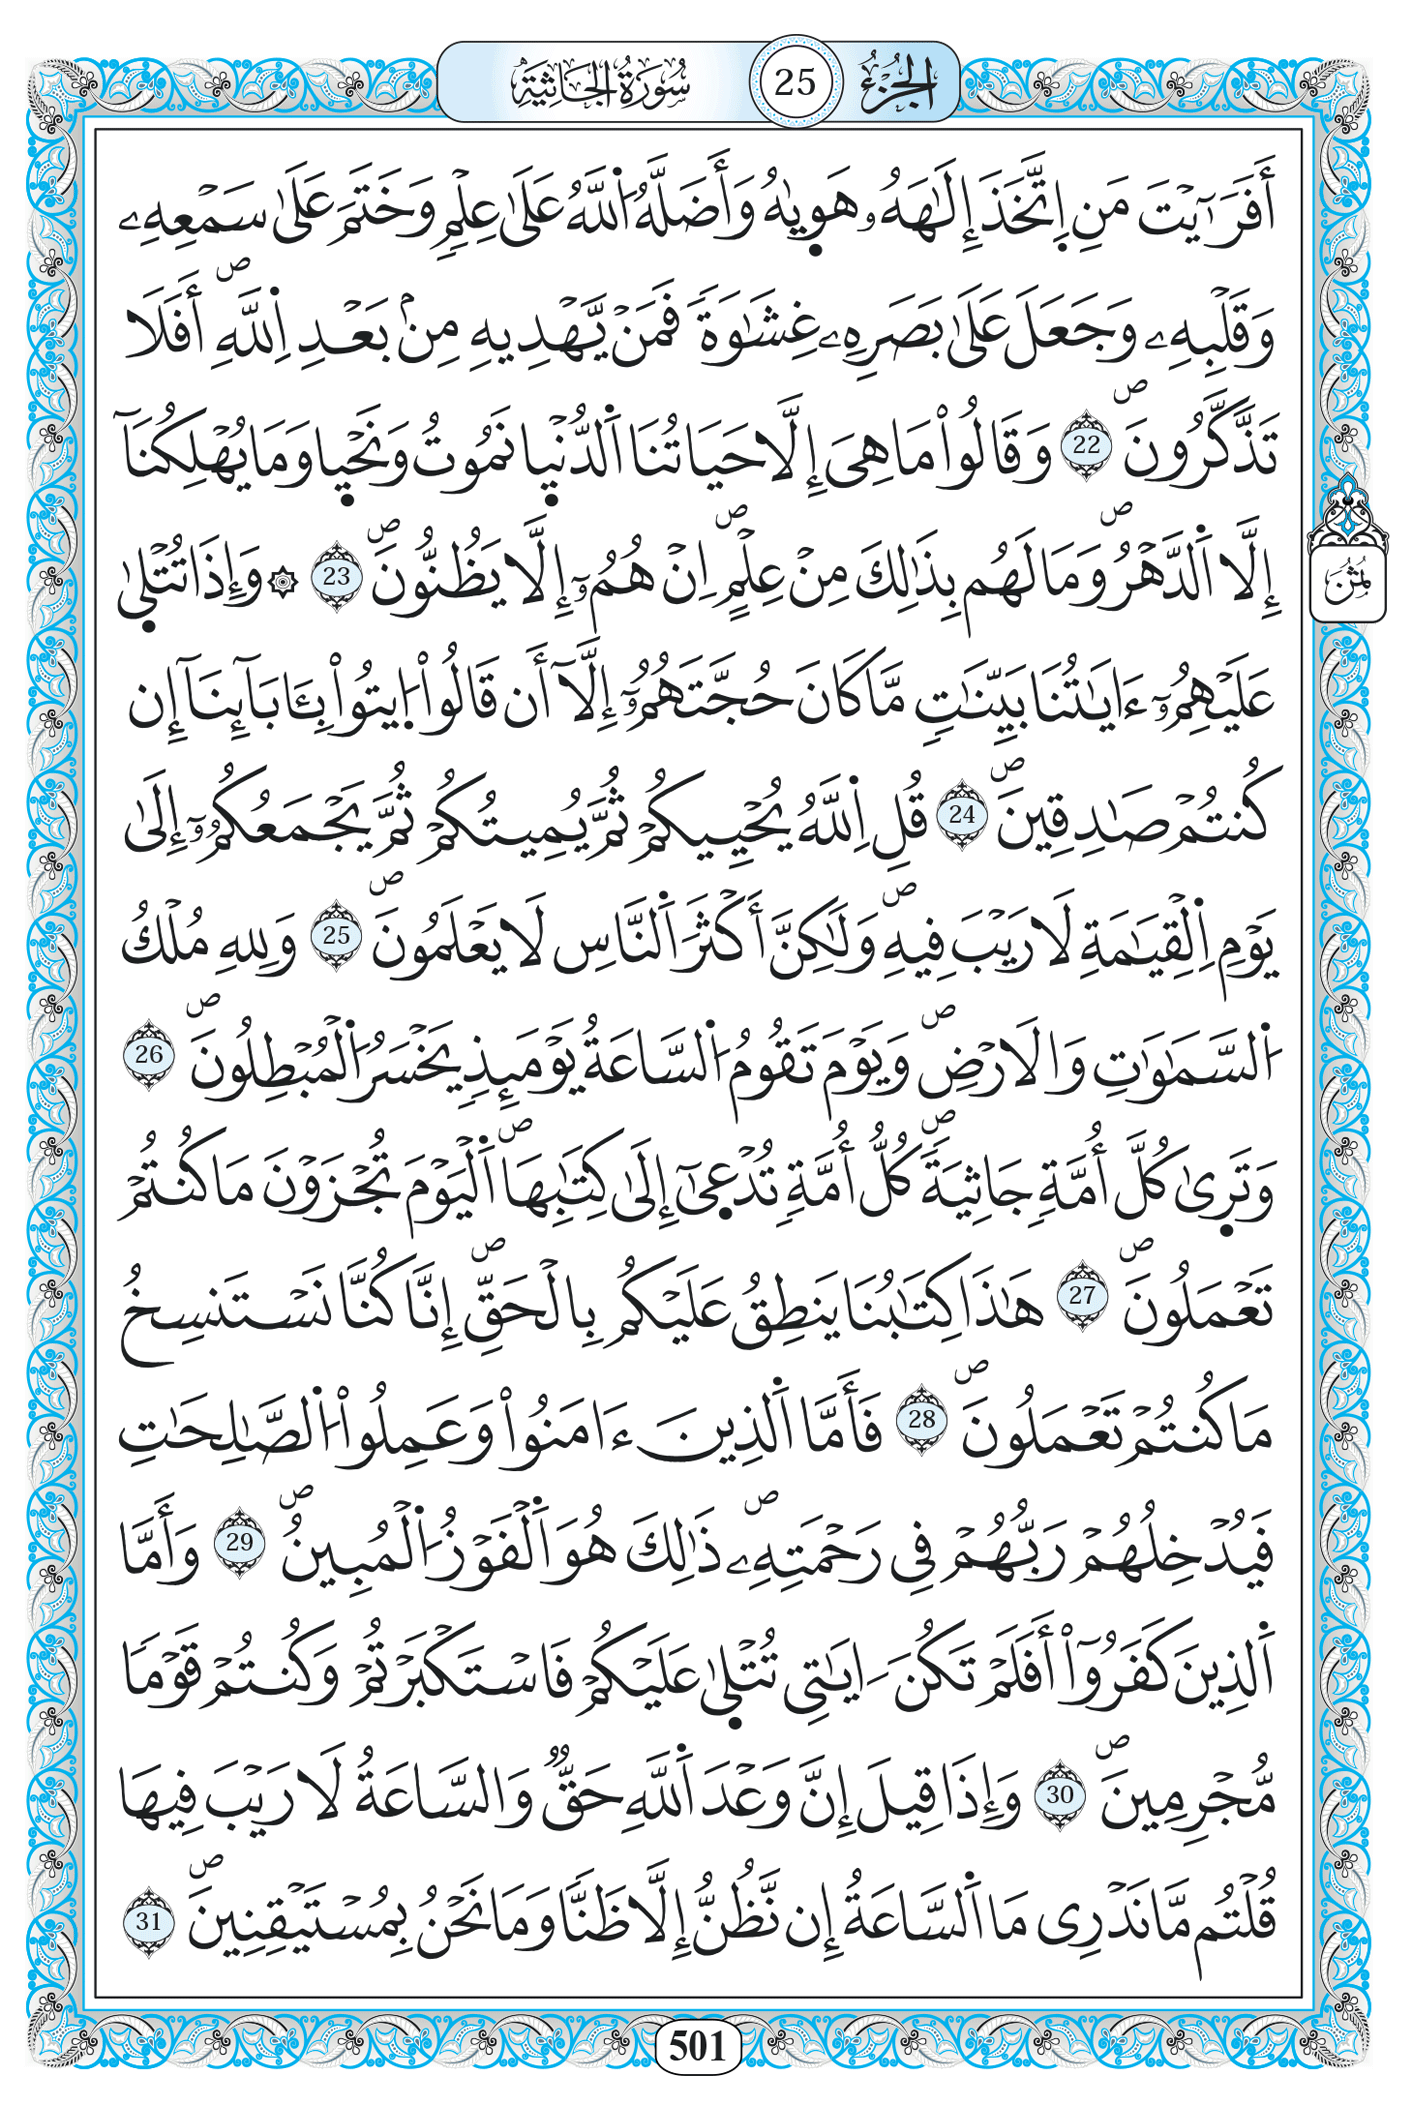 الجزء 25 سورة الجاثية
أَفَرَٰٓيْتَ مَنِ اِ۪تَّخَذَ إِلَٰهَهُۥ هَو۪يٰهُ وَأَضَلَّهُ اُ۬للَّهُ عَلَىٰ عِلْمٖ وَخَتَمَ عَلَىٰ سَمْعِهِۦ
وَقَلْبِهِۦ وَجَعَلَ عَلَىٰ بَصَرِهِۦ غِشَٰوَةٗ فَمَنْ يَّهْدِيهِ مِنۢ بَعْدِ اِ۬للَّهِۖ أَفَلَا
تَذَّكَّرُونَۖ 22 وَقَالُواْ مَا هِيَ إِلَّا حَيَاتُنَا اَ۬لدُّنْي۪ا نَمُوتُ وَنَحْي۪ا وَمَا يُهْلِكُنَآ
إِلَّا اَ۬لدَّهْرُۖ وَمَا لَهُم بِذَٰلِكَ مِنْ عِلْمٍۖ اِنْ هُمُۥٓ إِلَّا يَظُنُّونَۖ 23 ۞ وَإِذَا تُتْل۪يٰ
عَلَيْهِمُۥٓ ءَايَٰتُنَا بَيِّنَٰتٖ مَّا كَانَ حُجَّتَهُمُۥٓ إِلَّآ أَن قَالُواْ اُ۪يتُواْ بِـَٔابَآئِنَآ إِن
كُنتُمْ صَٰدِقِينَۖ 24 قُلِ اِ۬للَّهُ يُحْيِيكُمْ ثُمَّ يُمِيتُكُمْ ثُمَّ يَجْمَعُكُمُۥٓ إِلَىٰ
يَوْمِ اِ۬لْقِيَٰمَةِ لَا رَيْبَ فِيهِۖ وَلَٰكِنَّ أَكْثَرَ اَ۬لنَّاسِ لَا يَعْلَمُونَۖ 25 وَلِلهِ مُلْكُ
اُ۬لسَّمَٰوَٰتِ وَالَارْضِۖ وَيَوْمَ تَقُومُ اُ۬لسَّاعَةُ يَوْمَئِذٖ يَخْسَرُ اُ۬لْمُبْطِلُونَۖ 26
وَتَر۪يٰ كُلَّ أُمَّةٖ جَاثِيَةٗۖ كُلُّ أُمَّةٖ تُدْع۪يٰٓ إِلَىٰ كِتَٰبِهَاۖ اَ۬لْيَوْمَ تُجْزَوْنَ مَا كُنتُمْ
تَعْمَلُونَۖ 27 هَٰذَا كِتَٰبُنَا يَنطِقُ عَلَيْكُم بِالْحَقِّۖ إِنَّا كُنَّا نَسْتَنسِخُ
مَا كُنتُمْ تَعْمَلُونَۖ 28 فَأَمَّا اَ۬لذِينَ ءَامَنُواْ وَعَمِلُواْ اُ۬لصَّٰلِحَٰتِ
فَيُدْخِلُهُمْ رَبُّهُمْ فِي رَحْمَتِهِۦۖ ذَٰلِكَ هُوَ اَ۬لْفَوْزُ اُ۬لْمُبِينُۖ 29 وَأَمَّا
اَ۬لذِينَ كَفَرُوٓاْ أَفَلَمْ تَكُنَ ـ اٰيَٰتِي تُتْل۪يٰ عَلَيْكُمْ فَاسْتَكْبَرْتُمْ وَكُنتُمْ قَوْمٗا
مُّجْرِمِينَۖ 30 وَإِذَا قِيلَ إِنَّ وَعْدَ اَ۬للَّهِ حَقّٞ وَالسَّاعَةُ لَا رَيْبَ فِيهَا
قُلْتُم مَّا نَدْرِي مَا اَ۬لسَّاعَةُ إِن نَّظُنُّ إِلَّا ظَنّٗا وَمَا نَحْنُ بِمُسْتَيْقِنِينَۖ 31
ثمن
501